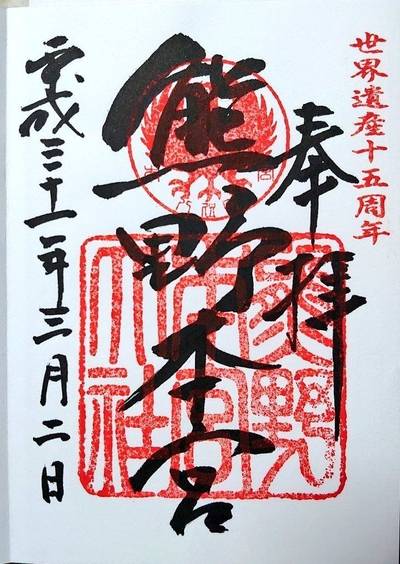 世界遺産十五周年
奉拝
熊野本宮
熊野
本宮
大社
平成三十一年三月二日